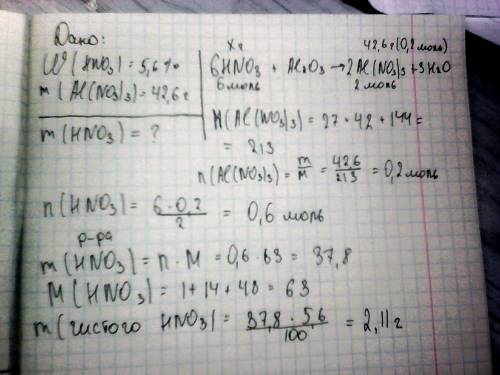 Дано:
W(HNO3) = 5,6 %
m(Al(NO3)3) = 42,6 г
m(HNO3) = ?
Xг 42,6 г (0,2 моль)
6HNO3 + Al2O3 → 2Al(NO3)3 + 3H2O
6 моль 2 моль
M(Al(NO3)3) = 27 + 42 + 144 =
= 213
n(Al(NO3)3) = m/M = 42,6/213 = 0,2 моль
n(HNO3) = 6·0,2/2 = 0,6 моль
р-ра
m(HNO3) = n · M = 0,6 · 63 = 37,8
M(HNO3) = 1 + 14 + 48 = 63
m(чистого HNO3) = 37,8 · 5,6/100 = 2,11 г